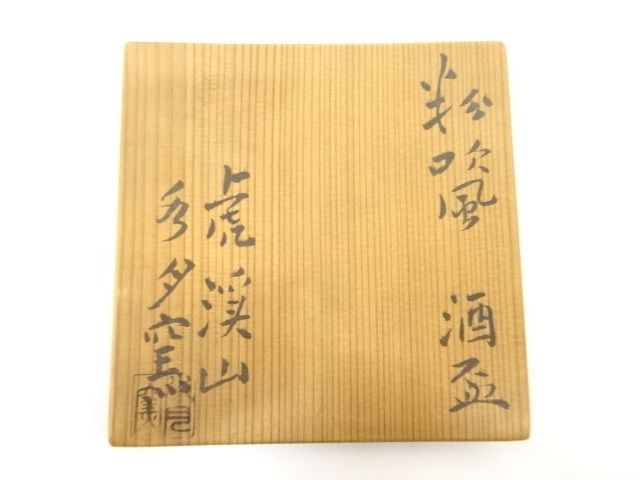 粉吹風 酒盃
虎渓山
水月窯